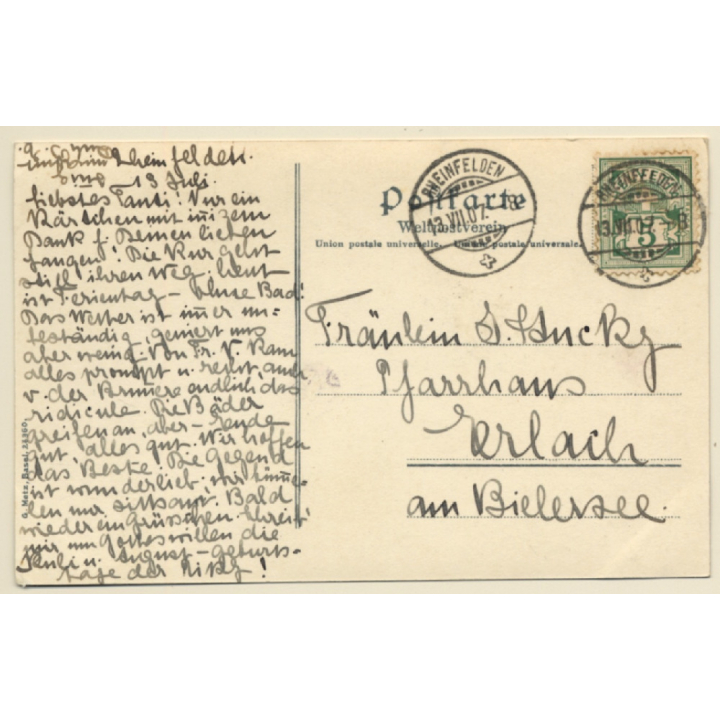 Rheinfelden.
13 Juli.
Liebstes Tanti! Nur ein
Kärtchen mit
Dank f. Deinen lieben
! Die Kur geht
still ihren Weg, heut
ist Ferientag – ohne Bad!
Das Wetter ist im̄er un-
beständig, geniert uns
aber wenig. Von Fr. V.
alles prompt u. recht, auch
v. der endlich das
ridicule. Die Bäder
greifen an, aber – Ende
gut, alles gut. Wir hoffen
das Beste. Die Gegend
ist wunderlieb, wir
nur. Bald
wieder ein Grüsschen. Schreib'
mir um Gotteswillen die
Juli u. August – Geburts-
tage der
Postkarte
Weltpostverein
Union postale universelle. Unione postale universale.
RHEINFELDEN
13.VII.07.-8
RHEINFELDEN
13.VII.07.-8
5
Fräulein J. Hucky
Pfarrhaus
Erlach
am Bielersee.
G. Metz, Basel,